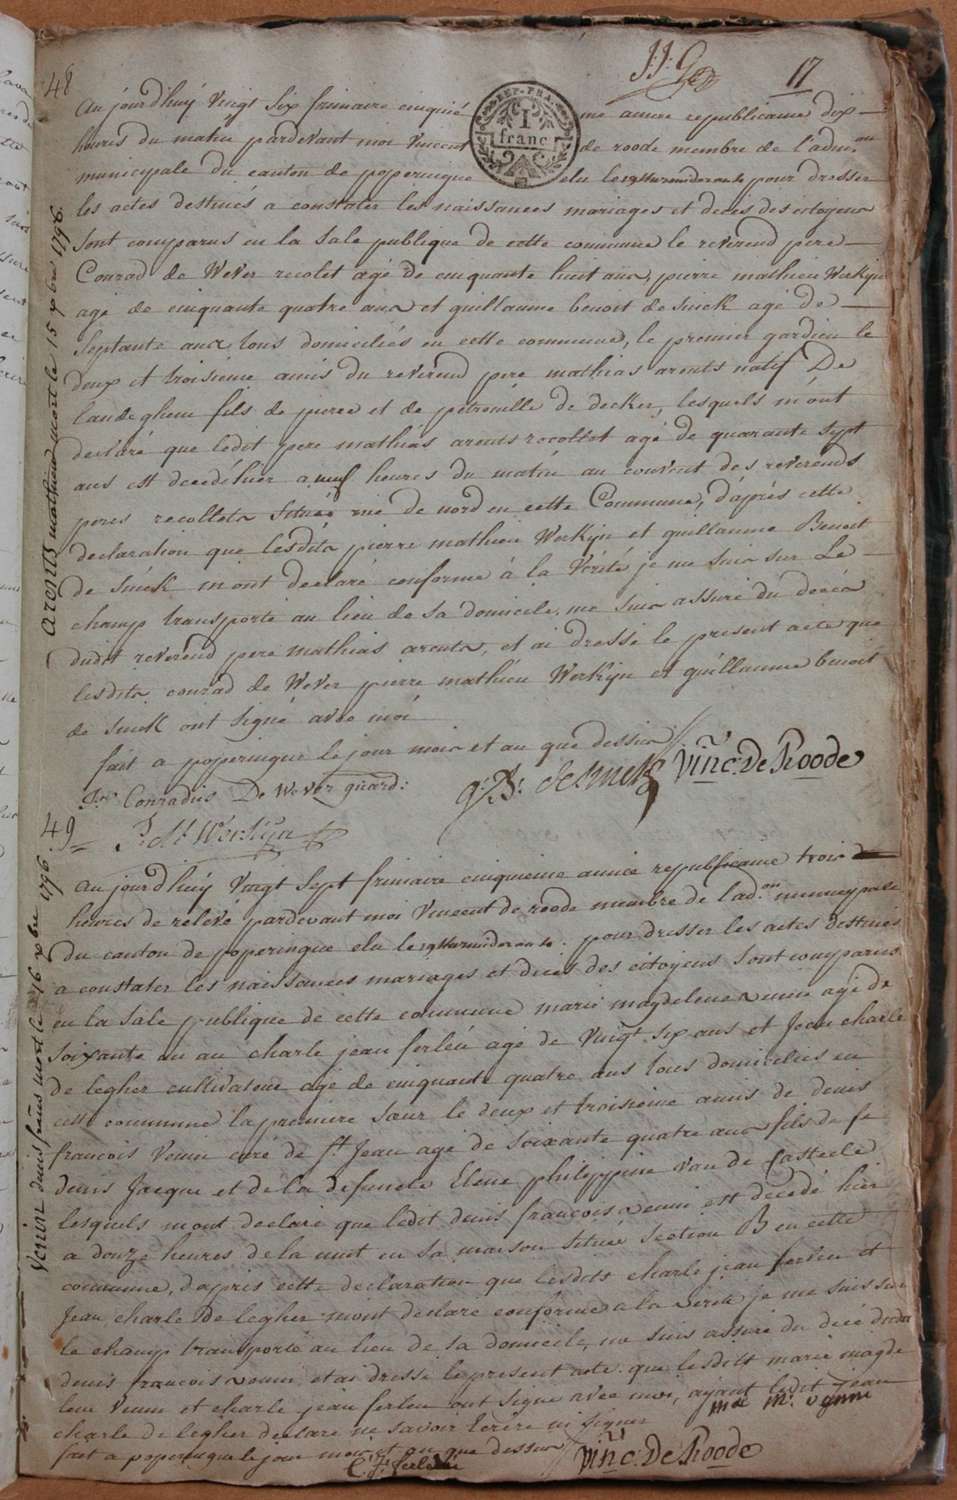 J: J: G
17
48
REP. FRA.
1
franc
Au jourdhuÿ Vingt Six frimaire cinquié me annee republicaine dix
heures du matin pardevant moi Vincent de roode membre de l'admion
municipale du canton de poperingue elu le 19 thermidor an 4 pour dresser
les actes destinés a constater les naissances mariages et deces des citoyens
sont comparus en la sale publique de cette commune le reverend pere
Conrad de Wever recolet agé de cinquante huit ans, pierre mathieu Werkijn
agé de cinquante quatre ans et guillaume benoit de Smck agé de
Septante ans tous domiciliés en cette commune, le premier gardien le
deux et troisiéme amis du reverend pere mathias arents natif De
landeghem fils de pierre et de petronille de decker, lesquels m'ont
declaré que ledit pere mathias arents recollet agé de quarante sept
ans est decedé hier a neuf heures du matin au couvent des reverends
peres recollets Située rue de nord en cette Commune, d'aprés cette
declaration que lesdits pierre mathieu Werkijn et guillaume Benoit
de Smick m'ont declaré conforme à la Vérité je me suis sur Le
champ transporté au lieu de sa domicile, me suis assuré du décés
dudit reverend pere mathias arents, et ai dressé le present acte que
lesdits conrad de Wever pierre mathieu Werkijn et guillaume benoit
de Smick ont signé avec moi
fait a poperingue le jour mois et an que dessus
fr. Conradus De Wever guard:
g: B: de Smick Vinc: De Roode
P: M: Werkijn
Arents mathieu mort le 15 xbre 1796
49
Au jourdhuÿ Vingt Sept frimaire cinquieme année republicaine trois
heures de relevé pardevant moi Vincent de roode membre de l'adon municipale
du canton de poperingue elu le 19 thermidor an 4. pour dresser les actes destinés
a constater les naissances mariages et deces des citoyens sont comparus
en la sale publique de cette commune marie magdelene venin agé de
soixante un an charle jean ferleu agé de Vingt six ans et Jean charle
de legher cultivateur agé de cinquante quatre ans tous domiciliés en
cette commune la premiere soeur le deux et troisieme amis de denis
francois Venin curé de St Jean agé de soixante quatre ans fils de fe
denis Jacque et de la defuncte Elene philippine van de Casteele
lesquels m'ont declaré que ledit denis francois venin est decedé hier
a douze heures de la nuit en sa maison située section B en cette
commune, d'apris cette declaration que lesdits charle jean ferleu et
Jean charle de legher m'ont declaré conforme a la verité je me suis sur
le champ transporté au lieu de sa domicile, me suis assuré du décé dudit
denis francois venin et ai dressé le present acte que lesdits marie magde
lene Venin et charle jean ferleu ont signé avec moi, ayant ledit jean
charle de legher declaré ne savoir ecrire ni signer
fait a poperingue le jour mois et an que dessus
C: J: ferleu
Vinc: De Roode
Venin denis frans mort le 16 xbre 1796